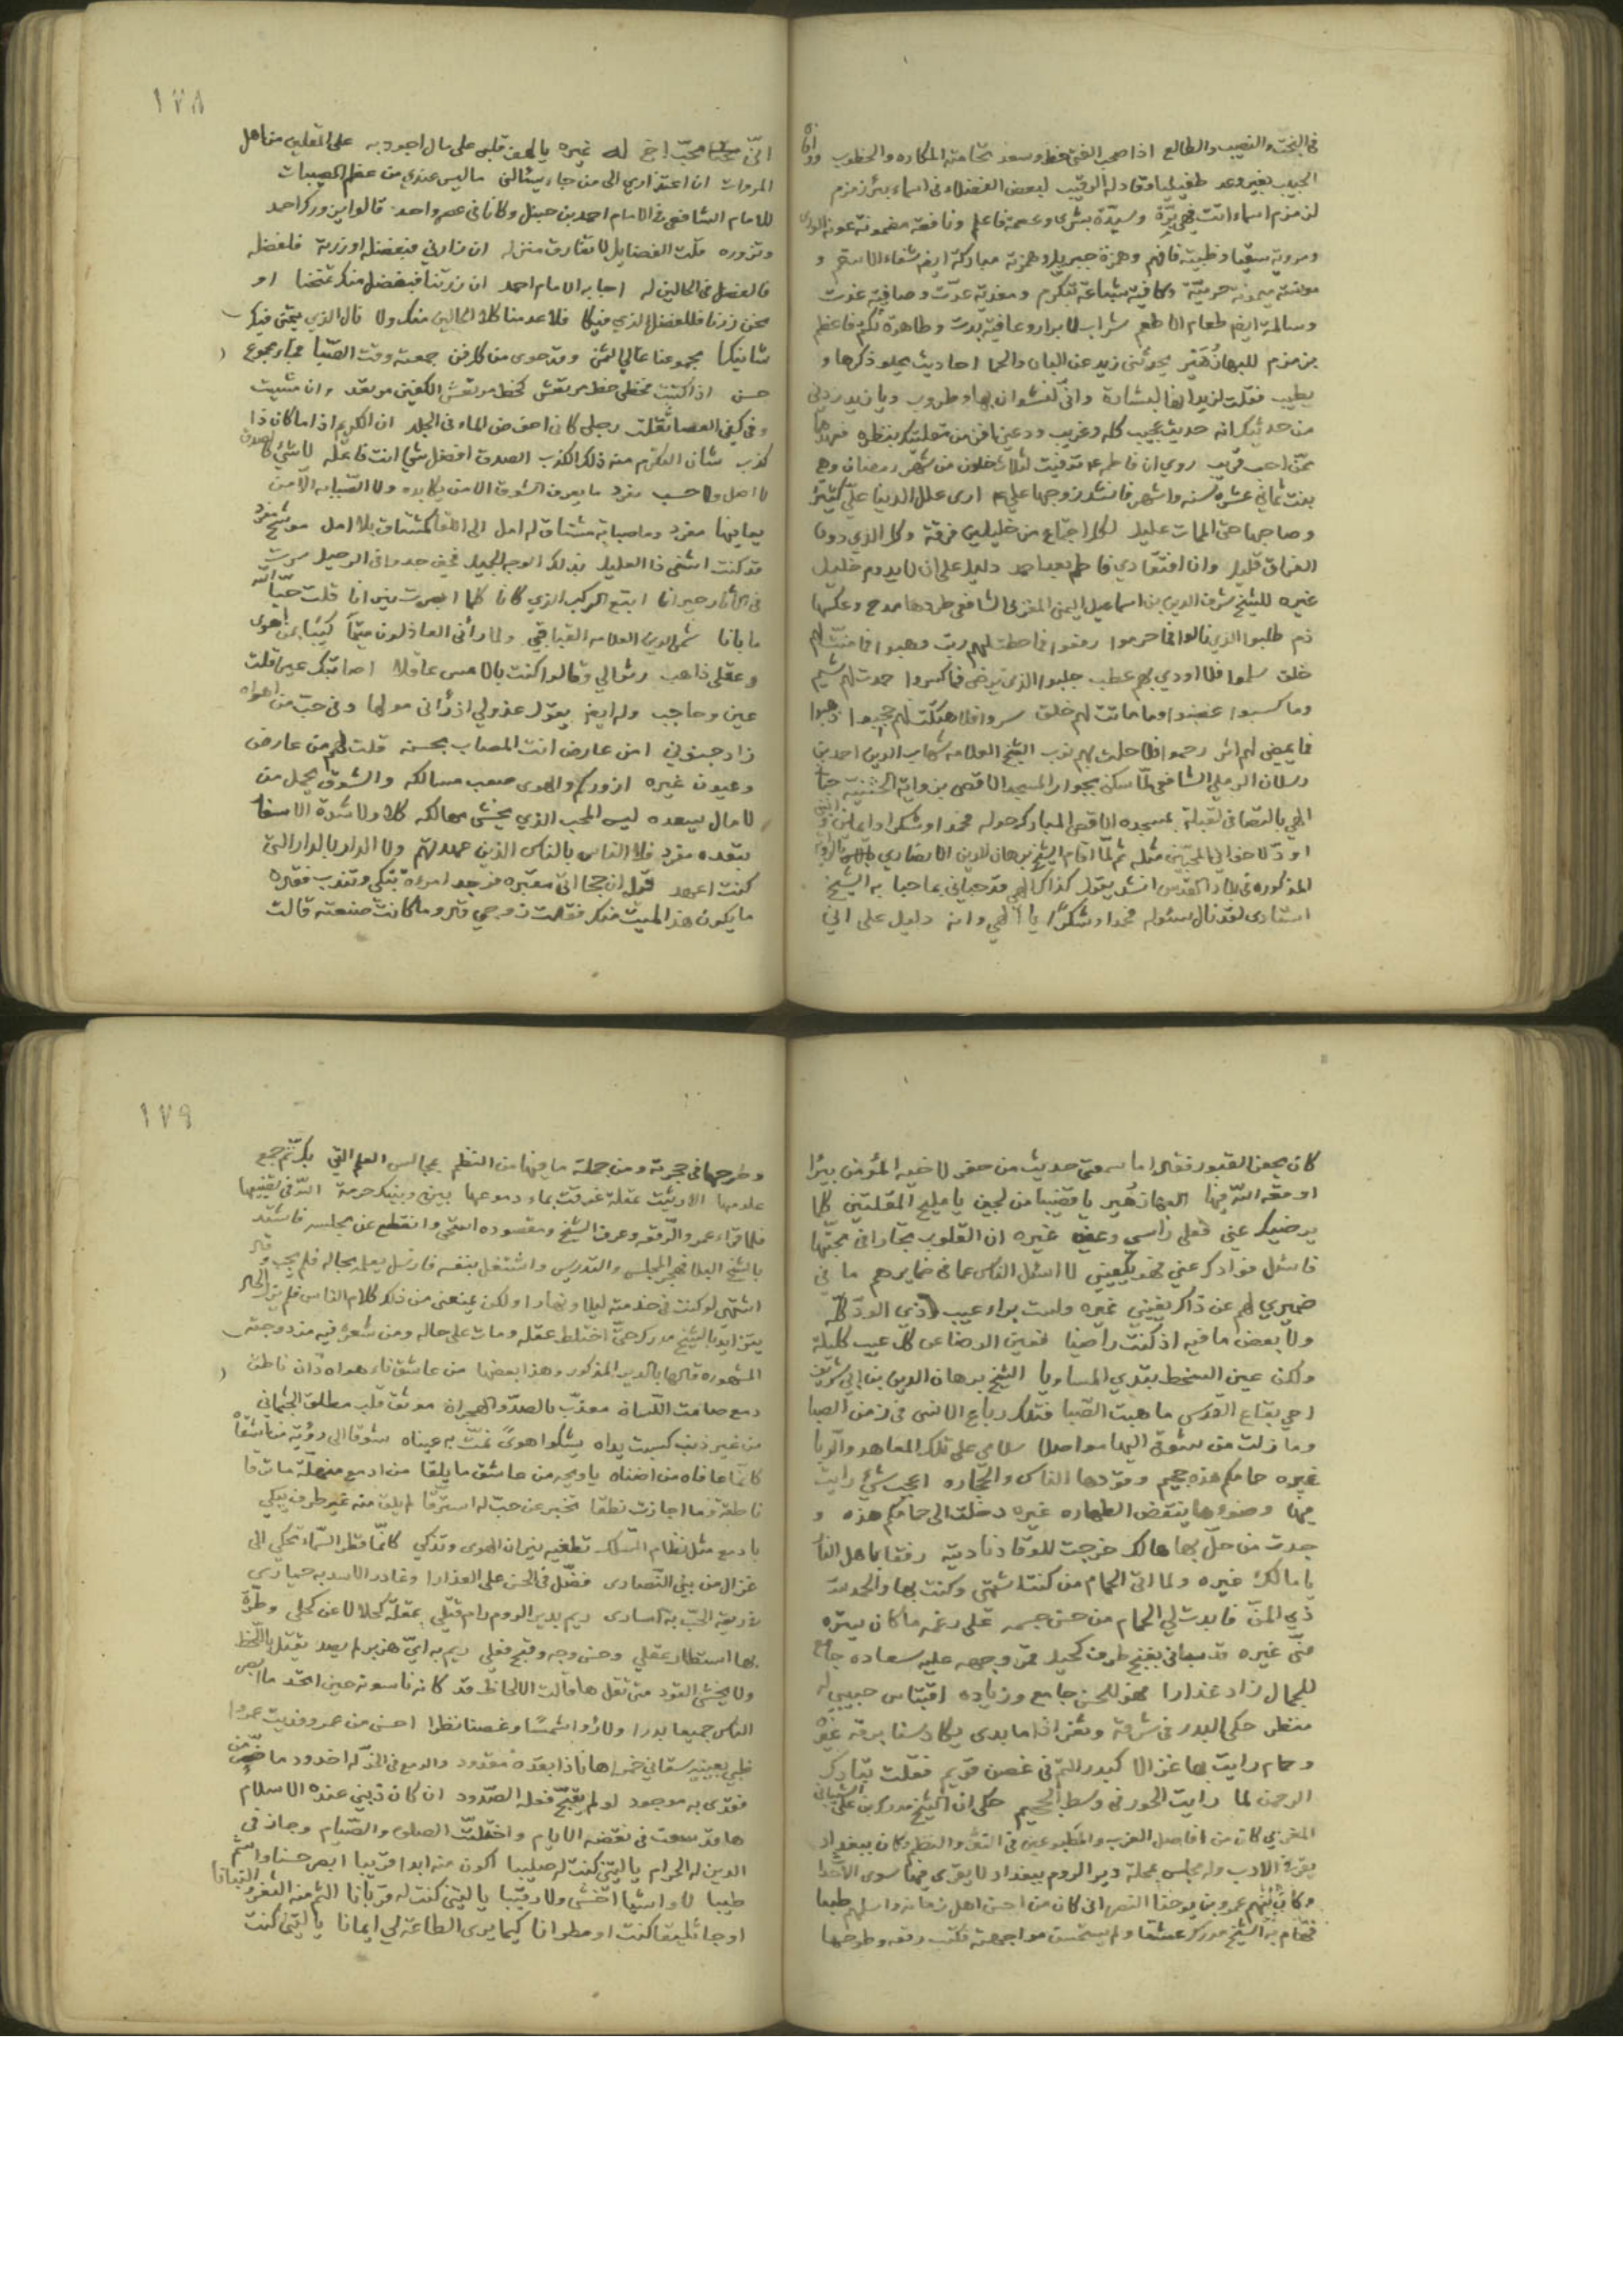 في البخت والنصيب والطالع اذا صحب الفتى حظ وسعد تحامته المكاره والخطوب ووافاه
الحبيب بغير وعد طفيليا وقاد له الرقيب لبعض الفضلاء في اسماء بئر زمزم
لزمزم اسماء اتت فهي برّة وسيدة بشرى وعصمة فاعلم ونافعة مضمونة عونة الورى
ومروية سقيا وظبية فافهم وهزمة جبريل وهمزته مباركة ايضا شفاء لاسقم و
مونسة ميمونة حرمية وكافية شباعة تبكرم ومغذية عدّت وصافية غدت
وسالمة ايضا طعام لاطعم شراب لابرار وعافية بدت وطاهرة تكتم فاعظم
بزمزم للبهاء زهير يحدثني زيد عن البان والحما احاديث يحلو ذكرها و
يطيب فقلت لزيد انها لبشارة واني لنشوان بها وطروب ويا زيد زدني
من حديثك انه حديث عجيب كله وغريب ودعني افز من مقلتيك بنظرة فعهدها
ممن احب قريب روي ان فاطمه توفيت لثلاث خلون من شهر رمضان وهي
بنت ثماني عشرة سنه واشهر فانشد زوجها علي ارى علل الدنيا عليّ كثيرة
وصاحبها حتى الممات عليل لكل اجتماع من خليلين فرقة وكل الذي دون
الفراق قليل وان افتقادي فاطم بعد احمد دليل على ان لا يدوم خليل
غيره للشيخ شرف الدين بن اسماعيل اليمني المقرئ الشافعي طردها مدح وعكسها
ذم طلبوا الذي نالوا فما حرموا رفعوا فما حطت لهم رتب وهبوا فما منّت لهم
خلق سلموا فلا اودي بهم عطب جلبوا الذي نرضى فما كسدوا حمدت لهم شيم
وما كسبوا غضبوا وما ساءت لهم خلق ستروا فلا هتكت لهم حجب ذهبوا
فما يمضي لهم اثر رحموا فلا حلت بهم نوب الشيخ العلامه شهاب الدين احمد بن
رسلان الرملي الشافعي لما سكن بجوار المسجد الاقصى بزواية الختنية حباني
الهي بالتصاقي لقبلة بمسجده الاقصى المبارك حوله فحمدا وشكرا دايمين واننى
اودّ لاخواني المحبين مثله ثم لما اقام الشيخ برهان الدين الانصاري بالزاوية
المذكوره في بلاد القدس انشد يقول كذاك الهي قد حباني بما حبا به الشيخ
استاذي لقد نال سئوله فحمدا وشكرا يا الهي وانه دليل على اني
١٧٨
انّي محب اخ له غيره يا لهف قلبي على مال اجود به على المقلين من اهل
المروات ان اعتذاري الى من جاء يسئالني ما ليس عندي من عظم المصيبات
للامام الشافعي في الامام احمد بن حنبل وكانا في عصر واحد قالوا يزورك احمد
وتزوره قلت الفضايل لا تفارق منزله ان زارني فبفضله او زرته فلفضله
فالفضل في الحالين له اجابه الامام احمد ان زرتنا فبفضل منك تمنحنا او
نحن زرنا فللفضل الذي فيكا فلا عدمنا كلا الحالين منك ولا نال الذي يتمنى فيك
شانيكا مجموعنا عالي الثمن وقد حوى من كل فن جمعته وقت الصبا مجموع
حسن اذا كتبت فخطي خط مرتعش كخط مرتعش الكفين مرتعد وان مشيت
وفي كفي العصا ثقلت رجلي كاني اخوض الماء في الجلد ان الكريم اذا ما كان ذا
كذب شان التكرم منه ذلك الكذب الصدق افضل شيء انت فاعله لا شيء كالصدق
لا اصل ولا حسب مفرد ما يعرف الشوق الا من يكابده ولا الصبابه الا من
يعانيها مفرد وما صبابة مشتاق له امل الى اللقا كمشتاق بلا امل موشح مفرد
قد كنت اشفي ذا العليل بذلك الوجه الجميل فحين جدوا في الرحيل سرت
في الآثار حيرانا اتبع الركب الذي كانا كلما ابصرت نيرانا قلت حيّا الله
ما بانا شمس الدين العلامه القباقبي ولما رأني العاذلون متيما كئيبا بمن اهوى
وعقلي ذاهب رثوا لي وقالوا كنت بالامس عاقلا اصابتك عين قلت
عين وحاجب وله ايضا يقول عذولي اذ رأني مولها وفي حب من اهواه
زاد جنوني امن عارض انت المصاب بحسنه قلت لهم من عارض
وعيون غيره ازوركم والهوى صعب مسالكه والشوق يحمل من
لا مال يسعده ليس المحب الذي يخشى مهالكه كلا ولا شدة الاسفار
تبعده مفرد فلا الناس بالناس الذين عهدتهم ولا الدار بالدار التي
كنت اعهد قيل ان جحا اتى مقبره فوجد امراة تبكي وتندب فقال
ما يكون هذا الميت منك فقالت زوجي قال وما كانت صنعته قالت
كان يحفر القبور فقال اما سمعتي حديث من حفر لاخيه المؤمن بئرا
اوقعه الله فيها البها زهير يا قضيبا من لجين يا مليح المقلتين كلما
يرضيك عني فعلى راسي وعيني غيره ان القلوب تجازاني محبتها
فاسئل فؤادك عني فهو يكفيني لا اسئل الناس عما في ضمايرهم ما في
ضميري لهم عن ذاك يغنيني غيره ولست براء عيب ذي الود كله
ولا بعض ما فيه اذ كنت راضيا فعين الرضا عن كل عيب كليلة
ولكن عين السخط تبدي المساويا الشيخ برهان الدين بن ابي شريف
احي بقاع القدس ما هبت الصبا فتلك رباع الانس في زمن الصبا
وما زلت من شوقي اليها مواصلا سلامي على تلك المعاهد والربا
غيره حمامكم هذه جحيم وقودها الناس والحجاره اعجب شيء رايت
فيها وضوءها ينقض الطهاره غيره دخلت الى حمامكم هذه و
جدت من حل بها هالك خرجت للوقاد ناديته رفقا باهل النار
يا مالك غيره ولما اتى الحمام من كنت اشتهى وكنت بها والحمد لله
ذي المنّ فابدت لي الحمام من حسن جسمه على رغمه ما كان يستره
منّي غيره قد سباني بغنج طرف كحيل قمر وجهه عليه سعاده جامع
للجمال زاد عذارا فهو للحسن جامع وزياده اقتباس حبيبي له
منظر حكى البدر في شرقه وثغر اذا ما بدى يكاد سنا برقه غيره
وحمام رايت بها غزالا كبدر التم في غصن قويم فقلت تبارك
الرحمن لما رايت الحور في وسط الجحيم حكي ان الشيخ مدرك بن علي الشيباني
المغربي كان من افاضل العرب والمطبوعين في النثر والنظم وكان ببغداد
يقرئ الادب وله مجلس بمحلة دير الروم ببغداد لا يقرئ فيها سوى الاحداث
وكان منهم عمرو بن يوحنا النصراني كان من احسن اهل زمانه واسلمهم طبعا
فهام به الشيخ مدرك عشقا ولم يستحسن مواجهته فكتب رقعه وطرحها
١٧٩
وطرحها في حجرته ومن جملة ما فيها من النظم بمجالس العلم التي بك تم جمع
علومها الا رثيت لمقلة غرقت بماء دموعها بيني وبينك حرمة الله في تضييعها
فلما قراء عمرو الرقعه وعرف الشيخ ومقصوده استحى وانقطع عن مجلسه فاشتد
بالشيخ البلا فهجر المجلس والتدريس واشتغل بنفسه فارسل يعلمه بحاله فلم يجب وقال
اشتهي لو كنت في خدمته ليلا ونهارا ولكن يمنعني من ذلك كلام الناس فلم يزل الحال
يتزايد بالشيخ مدرك حتى اختلط عقله ومات على حاله ومن شعره فيه مزدوجته
المشهوره قالها بالدير المذكور وهذا بعضها من عاشق ناء هواه دان ناطق
دمع صامت اللسان معذّب بالصد والهجران موثق قلب مطلق الجثماني
من غير ذنب كسبت يداه يشكوا هوى نمّت به عيناه شوقا الى رؤية من اشقاه
كانما عافاه من اضناه يا ويحه من عاشق ما يلقا من ادمع منهلة ما ترقا
ناطقة وما اجازت نطقا تخبر عن حب له استرقا لم يبق منه غير طرف يبكي
بادمع مثل نظام السلك تطفيه نيران الهوى وتذكي كانها قطر السماء تحكي الى
غزال من بني النصارى فضّل في الحسن على العذارا وغادر الاسد به حيارى
في ربقة الحب به اسارى ريم بدير الروم رام قتلي بمقلة كحلا لا عن كحلي وطرّة
بها استطار عقلي وحسن وجه وقبح فعلي ريم به ايّ هزبر لم يصد يقتل باللحظ
ولا يخشى القود متى تقل ها قالت الالحاظ قد كانه ناسوته حين اتحد ما ابصر
الناس جميعا بدرا ولا راوا شمسا وغصنا نظرا احسن من عمرو فديت عمروا
ظبي بعينيه سقاني خمرا ها انا ذا بقده مقدود والدمع في الخد له اخدود ما ضرّ من
فقدي به موجود لو لم يقبح فعله الصدود ان كان ذنبي عنده الاسلام
فقد سعت في نقضه الايام واختلت الصلاة والصيام وجاز في
الدين له الحرام يا ليتني كنت له صليبا اكون منه ابدا قريبا ابصر حسنا واشم
طيبا لا واشيا اخشى ولا رقيبا يا ليتني كنت له قربانا الثم منه الثغر والبنانا
او جاثليقا كنت او مطرانا كيما يرى الطاعة لي ايمانا يا ليتني كنت